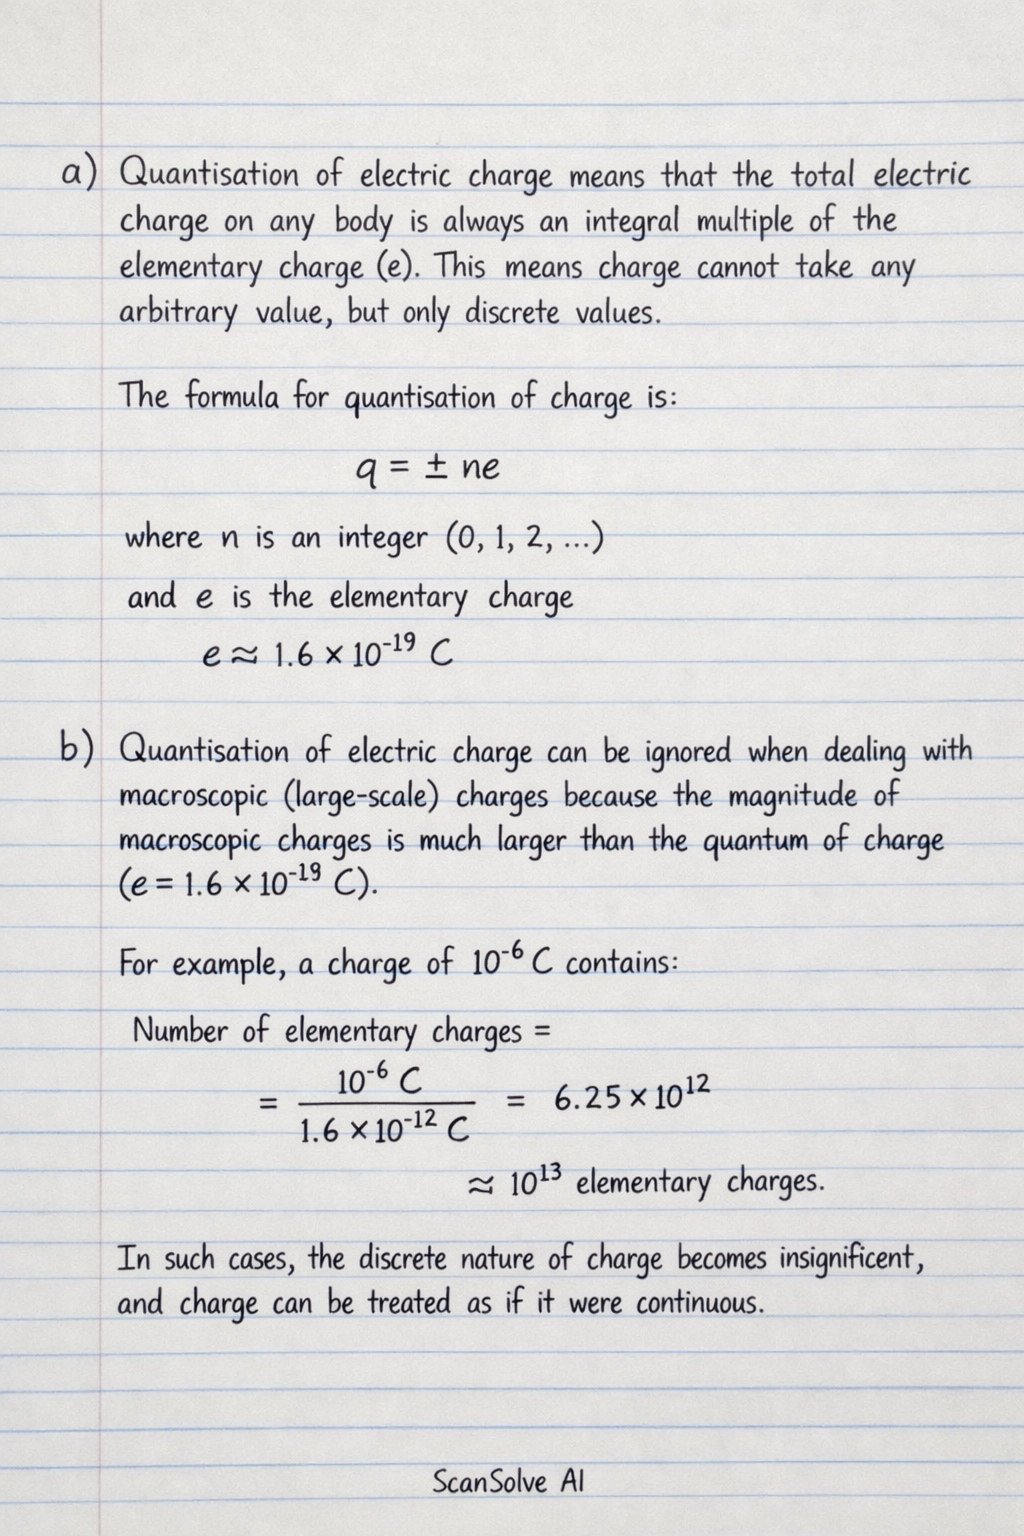 a) Quantisation of electric charge means that the total electric
charge on any body is always an integral multiple of the
elementary charge (e). This means charge cannot take any
arbitrary value, but only discrete values.
The formula for quantisation of charge is:
q = ± ne
where n is an integer (0, 1, 2, ...)
and e is the elementary charge
e ≈ 1.6 × 10⁻¹⁹ C
b) Quantisation of electric charge can be ignored when dealing with
macroscopic (large-scale) charges because the magnitude of
macroscopic charges is much larger than the quantum of charge
(e = 1.6 × 10⁻¹⁹ C).
For example, a charge of 10⁻⁶ C contains:
Number of elementary charges =
= 10⁻⁶ C / 1.6 × 10⁻¹² C = 6.25 × 10¹²
≈ 10¹³ elementary charges.
In such cases, the discrete nature of charge becomes insignificent,
and charge can be treated as if it were continuous.
ScanSolve AI